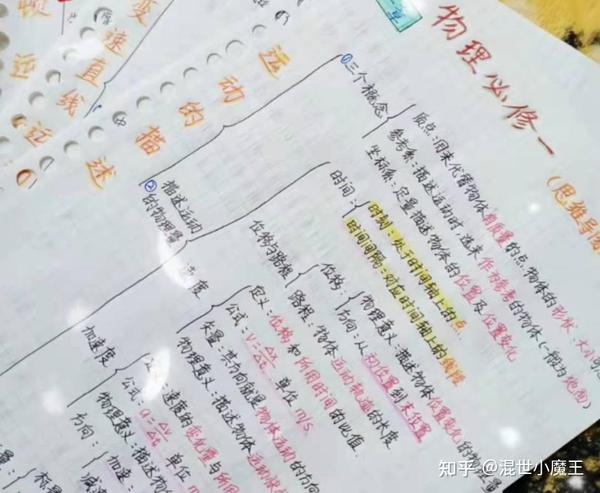 物理必修一
(思维导图
运动的描述
变速直线
①三个概念
质点:用来代替物体有质量的点,物体的形状、大小
参考系:描述运动时,选来作为参考的物体(一般为地面)
坐标系:定量描述物体的位置及位置变化
②描述运动的物理量
时间:
时刻:处于时间轴上的点
时间间隔:对应时间轴上的线段
位移与路程
位移:
物理意义:描述物体位置变化的物理量
方向:从初位置到末位置
路程:物体运动轨迹的长度
速度
定义:位移和所用时间的比值
公式:v=Δx/Δt 单位 m/s
矢量:其方向就是物体运动的方向
物理意义:描述物体运动快
加速度
定义:速度的变化量与所用
公式:a=Δv/Δt 单位
物理意义:描述物体
方向:
加速:
减速
知乎 @混世小魔王